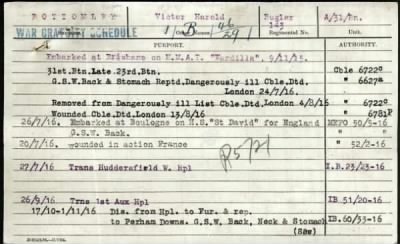 BOTTOMLEY Victor Harold Bugler A/31/Bn.
WAR GRATUITY SCHEDULE 343 Regimental No.
PURPORT. AUTHORITY.
Embarked at Brisbane on H.M.A.T. "Wandilla", 9/11/15.
31st.Btn.Late.23rd.Btn. Cble 6722c
G.S.W.Back & Stomach Reptd.Dangerously ill Cble.Dtd. " 6627a
London 24/7/16.
Removed from Dangerously ill List Cble.Dtd.London 4/8/16 " 6722c
Wounded Cble.Dtd.London 13/8/16 " 6781p
26/7/16. Embarked at Boulogne on H.S."St David" for England MF70 50/5-16
G.S.W. Back.
20/7/16. wounded in action France " 52/2-16
R5721
27/7/16 Trans Huddersfield W. Hpl I.B.23/23-16
26/9/16 Trns 1st Aux Hpl IB.51/20-16
17/10-1/11/16 Dis. from Hpl. to Fur. & rep.
to Perham Downs. G.S.W, Back, Neck & Stomach IB.60/33-16
(Sev)